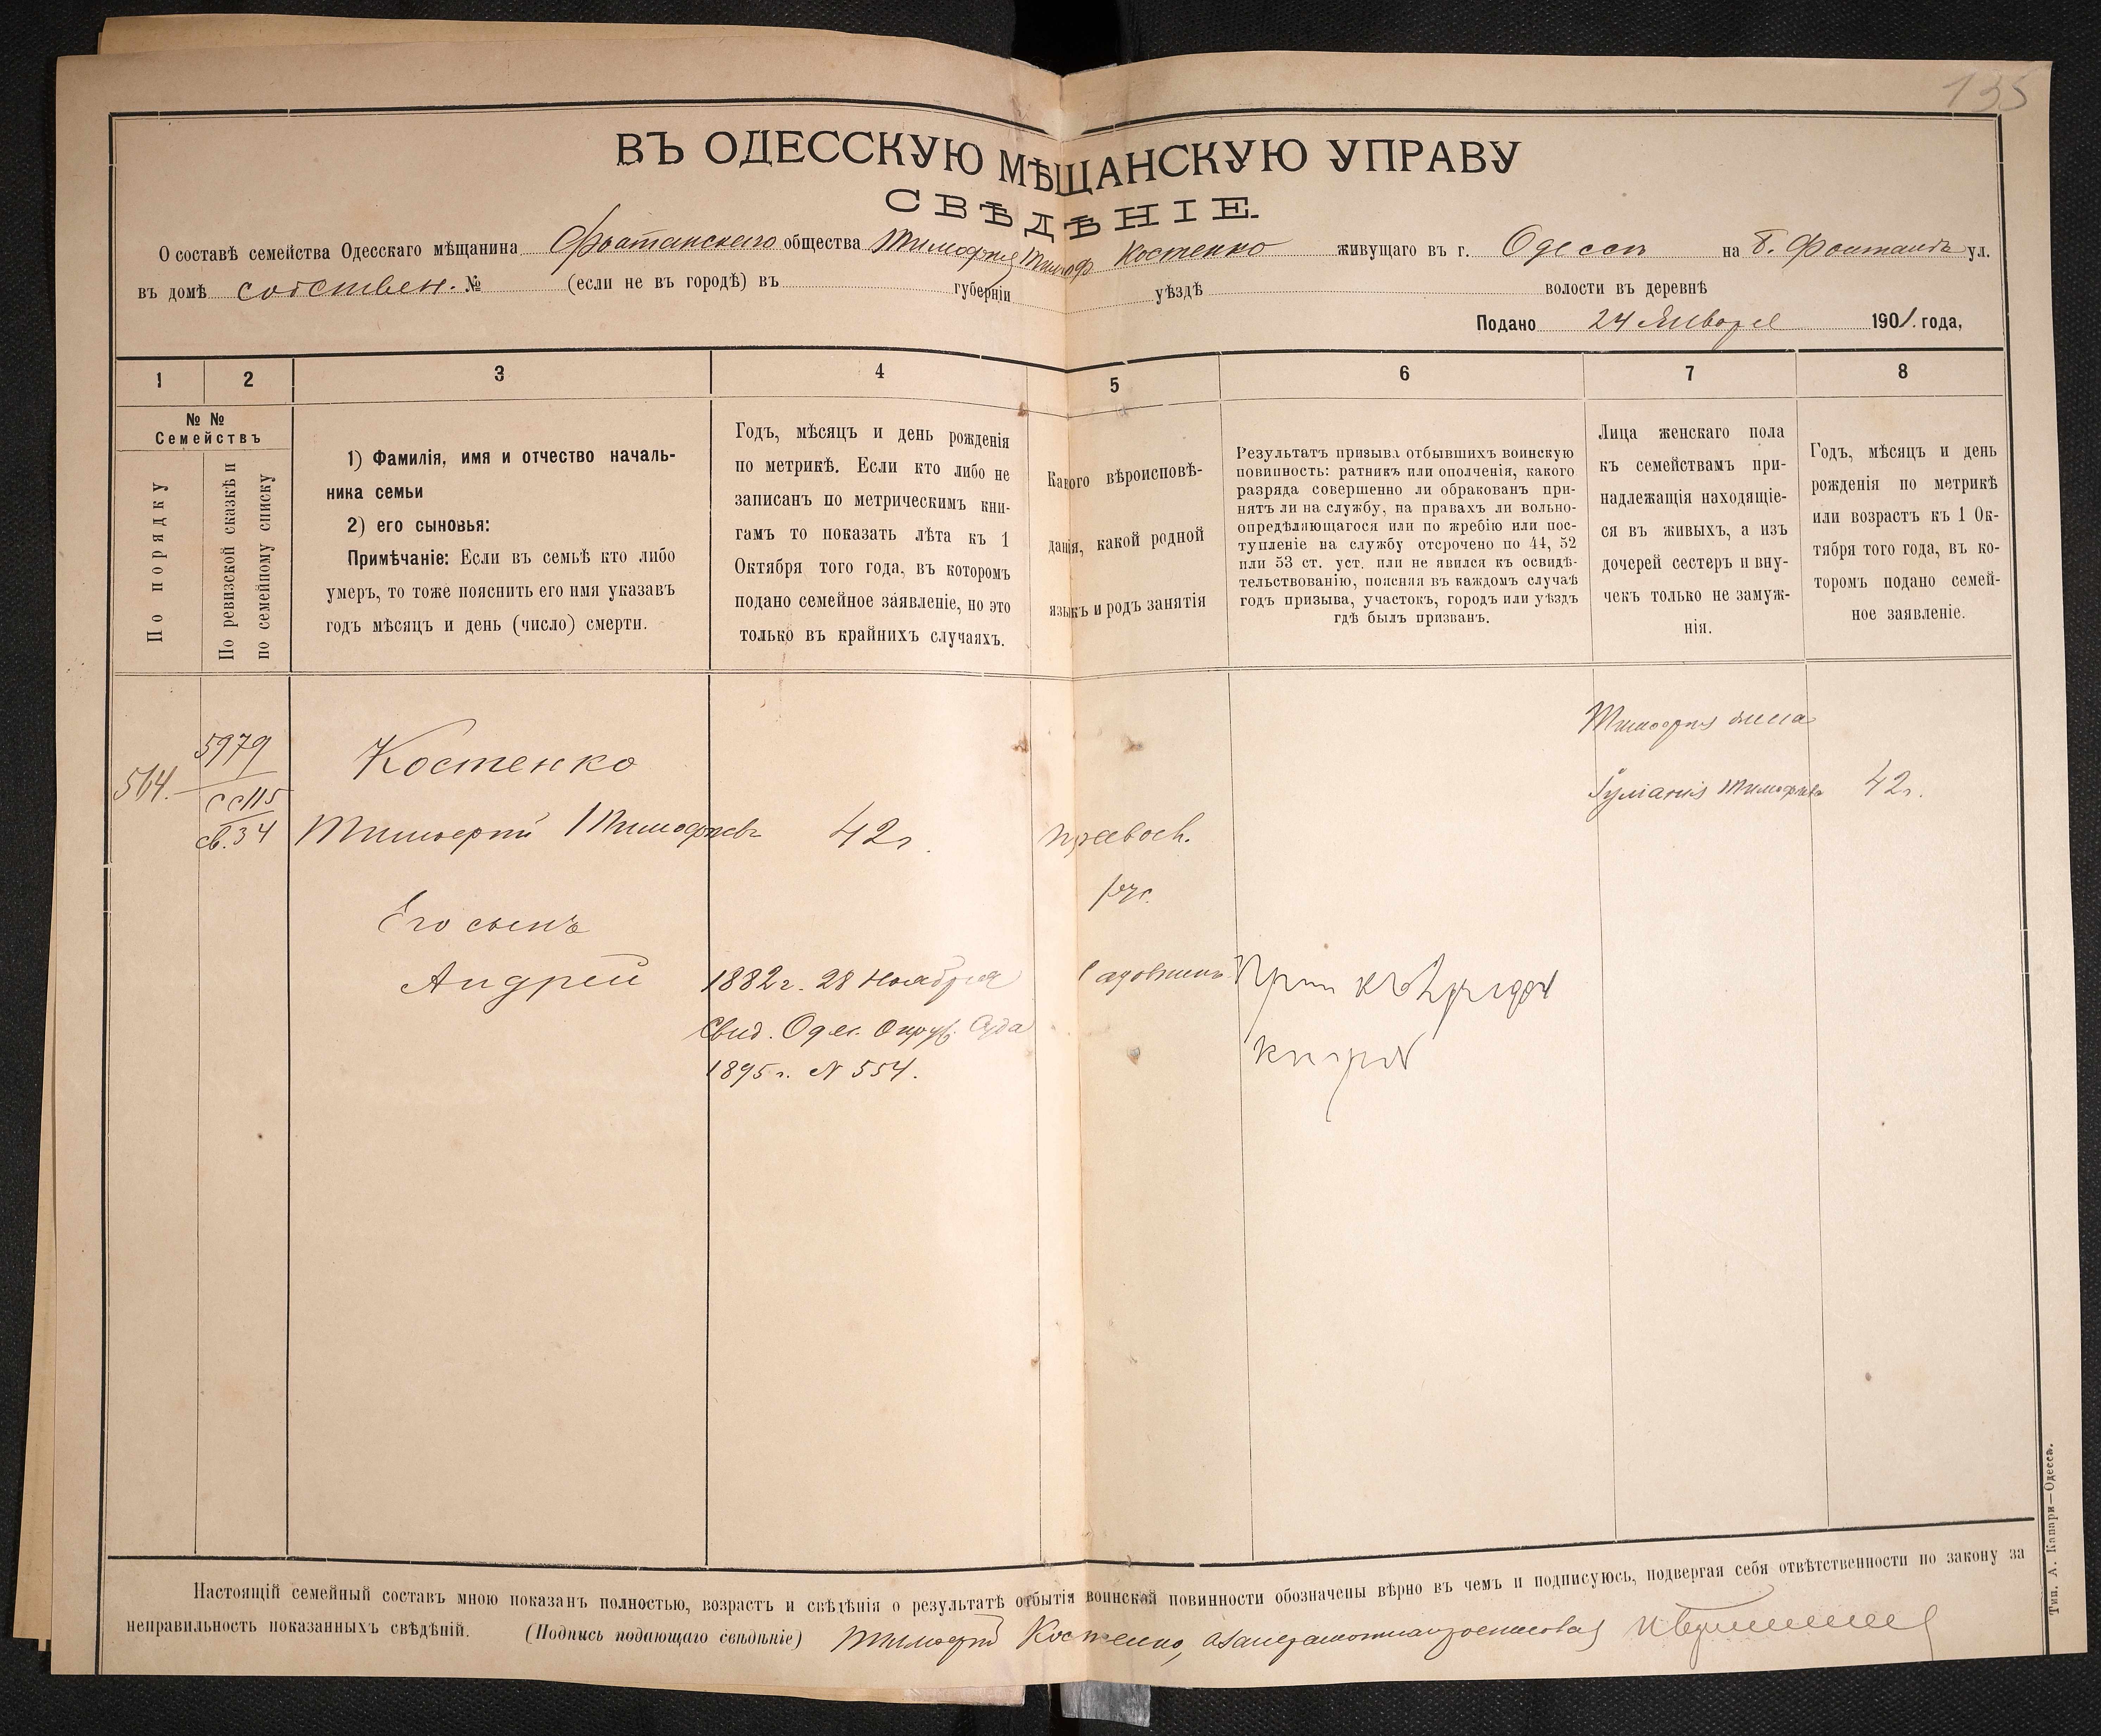 135
ВЪ ОДЕССКУЮ МѢЩАНСКУЮ УПРАВУ
СВѢДѢНІЕ.
О составѣ семейства Одесскаго мѣщанина Фонтанскаго общества Тимофея Тимоф Костенко живущаго въ г. Одессѣ на Б. Фонтанѣ ул.
въ домѣ собствен. № (если не въ городѣ) въ губерніи уѣздѣ волости въ деревнѣ
Подано 24 Января 1901. года,
1 2 3 4 5 6 7 8
№ №
Семействъ
По порядку
По ревизской сказкѣ и
по семейному списку
1) Фамилія, имя и отчество началь-
ника семьи
2) его сыновья:
Примѣчаніе: Если въ семьѣ кто либо
умеръ, то тоже пояснить его имя указавъ
годъ мѣсяцъ и день (число) смерти.
Годъ, мѣсяцъ и день рожденія
по метрикѣ. Если кто либо не
записанъ по метрическимъ кни-
гамъ то показать лѣта къ 1
Октября того года, въ которомъ
подано семейное заявленіе, но это
только въ крайнихъ случаяхъ.
Какого вѣроисповѣ-
данія, какой родной
языкъ и родъ занятія
Результатъ призыва отбывшихъ воинскую
повинность: ратникъ или ополченія, какого
разряда совершенно ли обракованъ при-
нятъ ли на службу, на правахъ ли вольно-
опредѣляющагося или по жребію или пос-
тупленіе на службу отсрочено по 44, 52
или 53 ст. уст. или не явился къ освидѣ-
тельствованію, поясняя въ каждомъ случаѣ
годъ призыва, участокъ, городъ или уѣздъ
гдѣ былъ призванъ.
Лица женскаго пола
къ семействамъ при-
надлежащія находящіе-
ся въ живыхъ, а изъ
дочерей сестеръ и вну-
чекъ только не замуж-
нія.
Годъ, мѣсяцъ и день
рожденія по метрикѣ
или возрастъ къ 1 Ок-
тября того года, въ ко-
торомъ подано семей-
ное заявленіе.
Тимофея жена
5979
Костенко
564.
Іуліанія Тимофѣева 42г.
св. 34 Тимофей Тимофѣевъ 42г. правосл.
рус.
Его сынъ
Андрей 1882г. 28 Ноября Садовникъ
Свид. Одес. Окруж. Суда
1895г. N 554.
Настоящій семейный составъ мною показанъ полностью, возрастъ и свѣдѣнія о результатѣ отбытія воинской повинности обозначены вѣрно въ чемъ и подписуюсь, подвергая себя отвѣтственности по закону за
неправильность показанныхъ свѣдѣній. (Подпись подающаго свѣдѣніе) Тимофей Костенко,
Тип. А. Капари—Одесса.